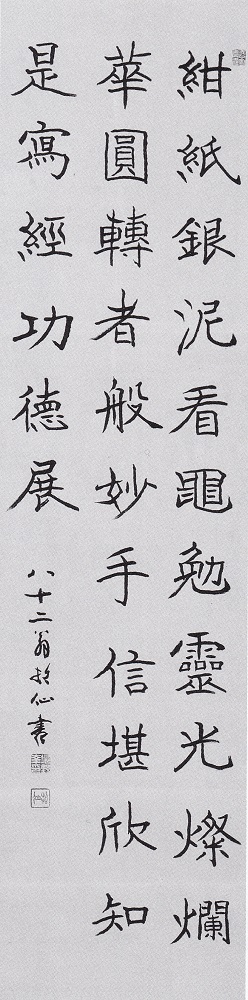 紺紙銀泥看黽勉靈光燦爛
華圓轉者般妙手信堪欣知
是寫經功德展
八十二翁 仙書